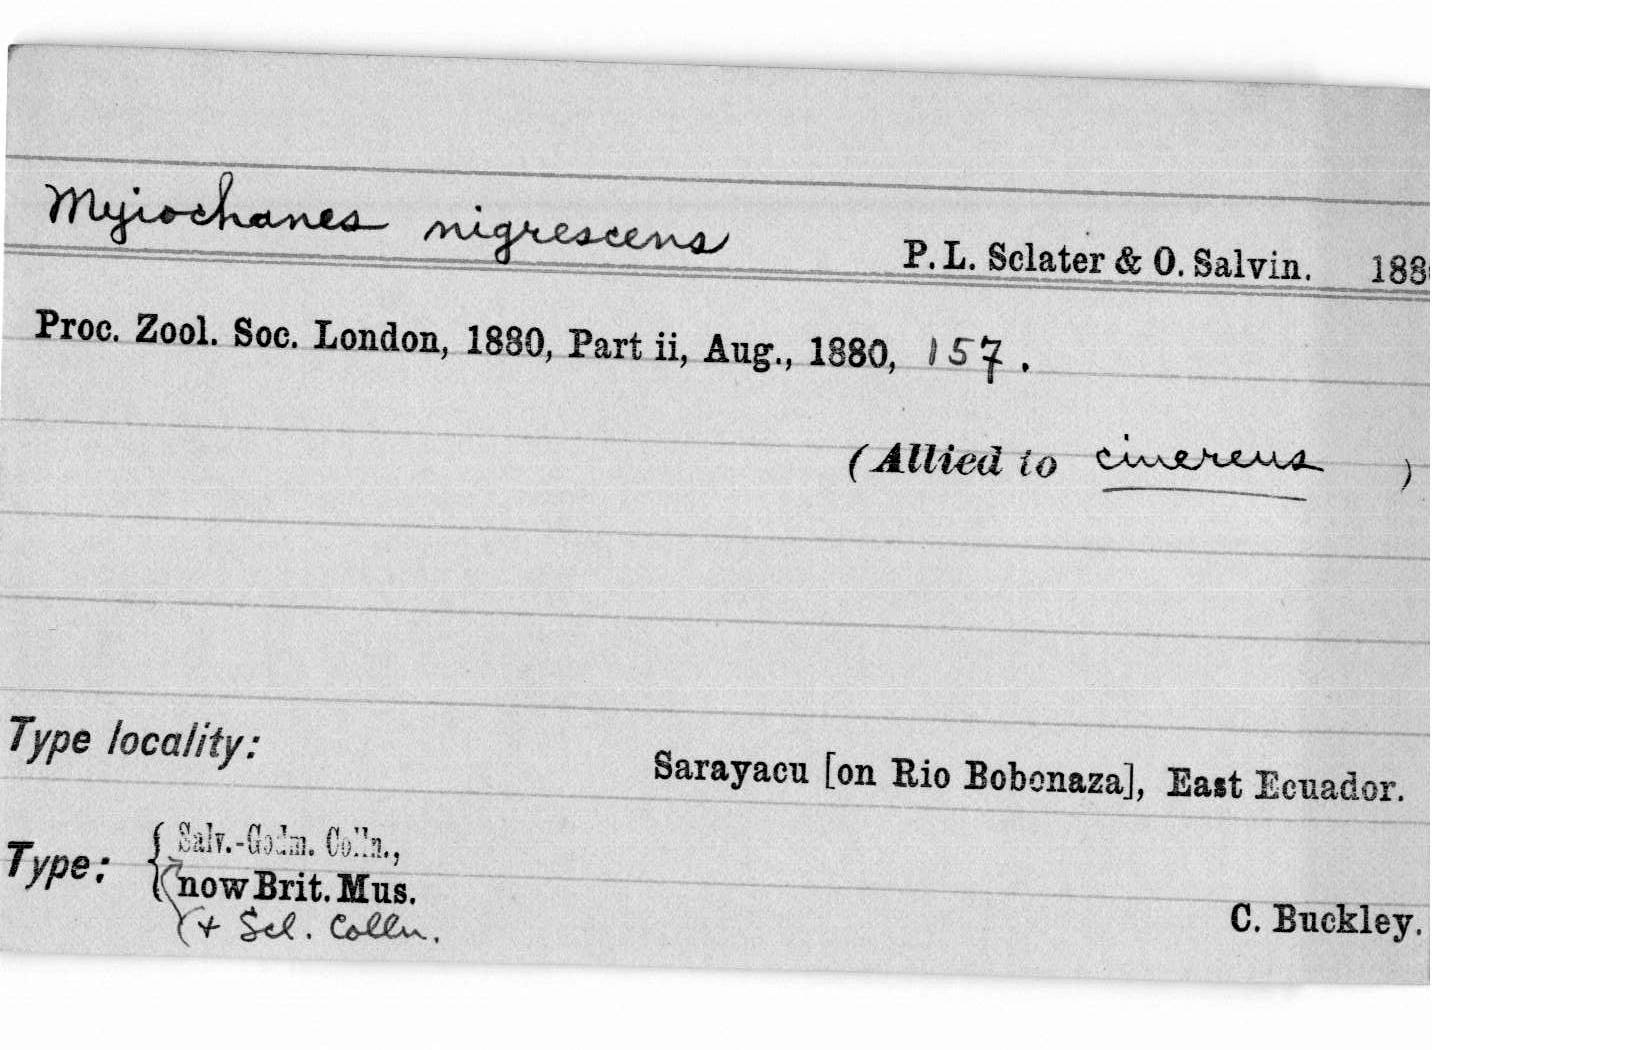 Myiochanes nigrescens P. L. Sclater & O. Salvin. 188
Proc. Zool. Soc. London, 1880, Part ii, Aug., 1880, 157.
(Allied to cinereus )
Type locality:
Sarayacu [on Rio Bobonaza], East Ecuador.
Type: { Salv.-Godm. Colln.,
now Brit. Mus.
(+ Scl. Colln.
C. Buckley.